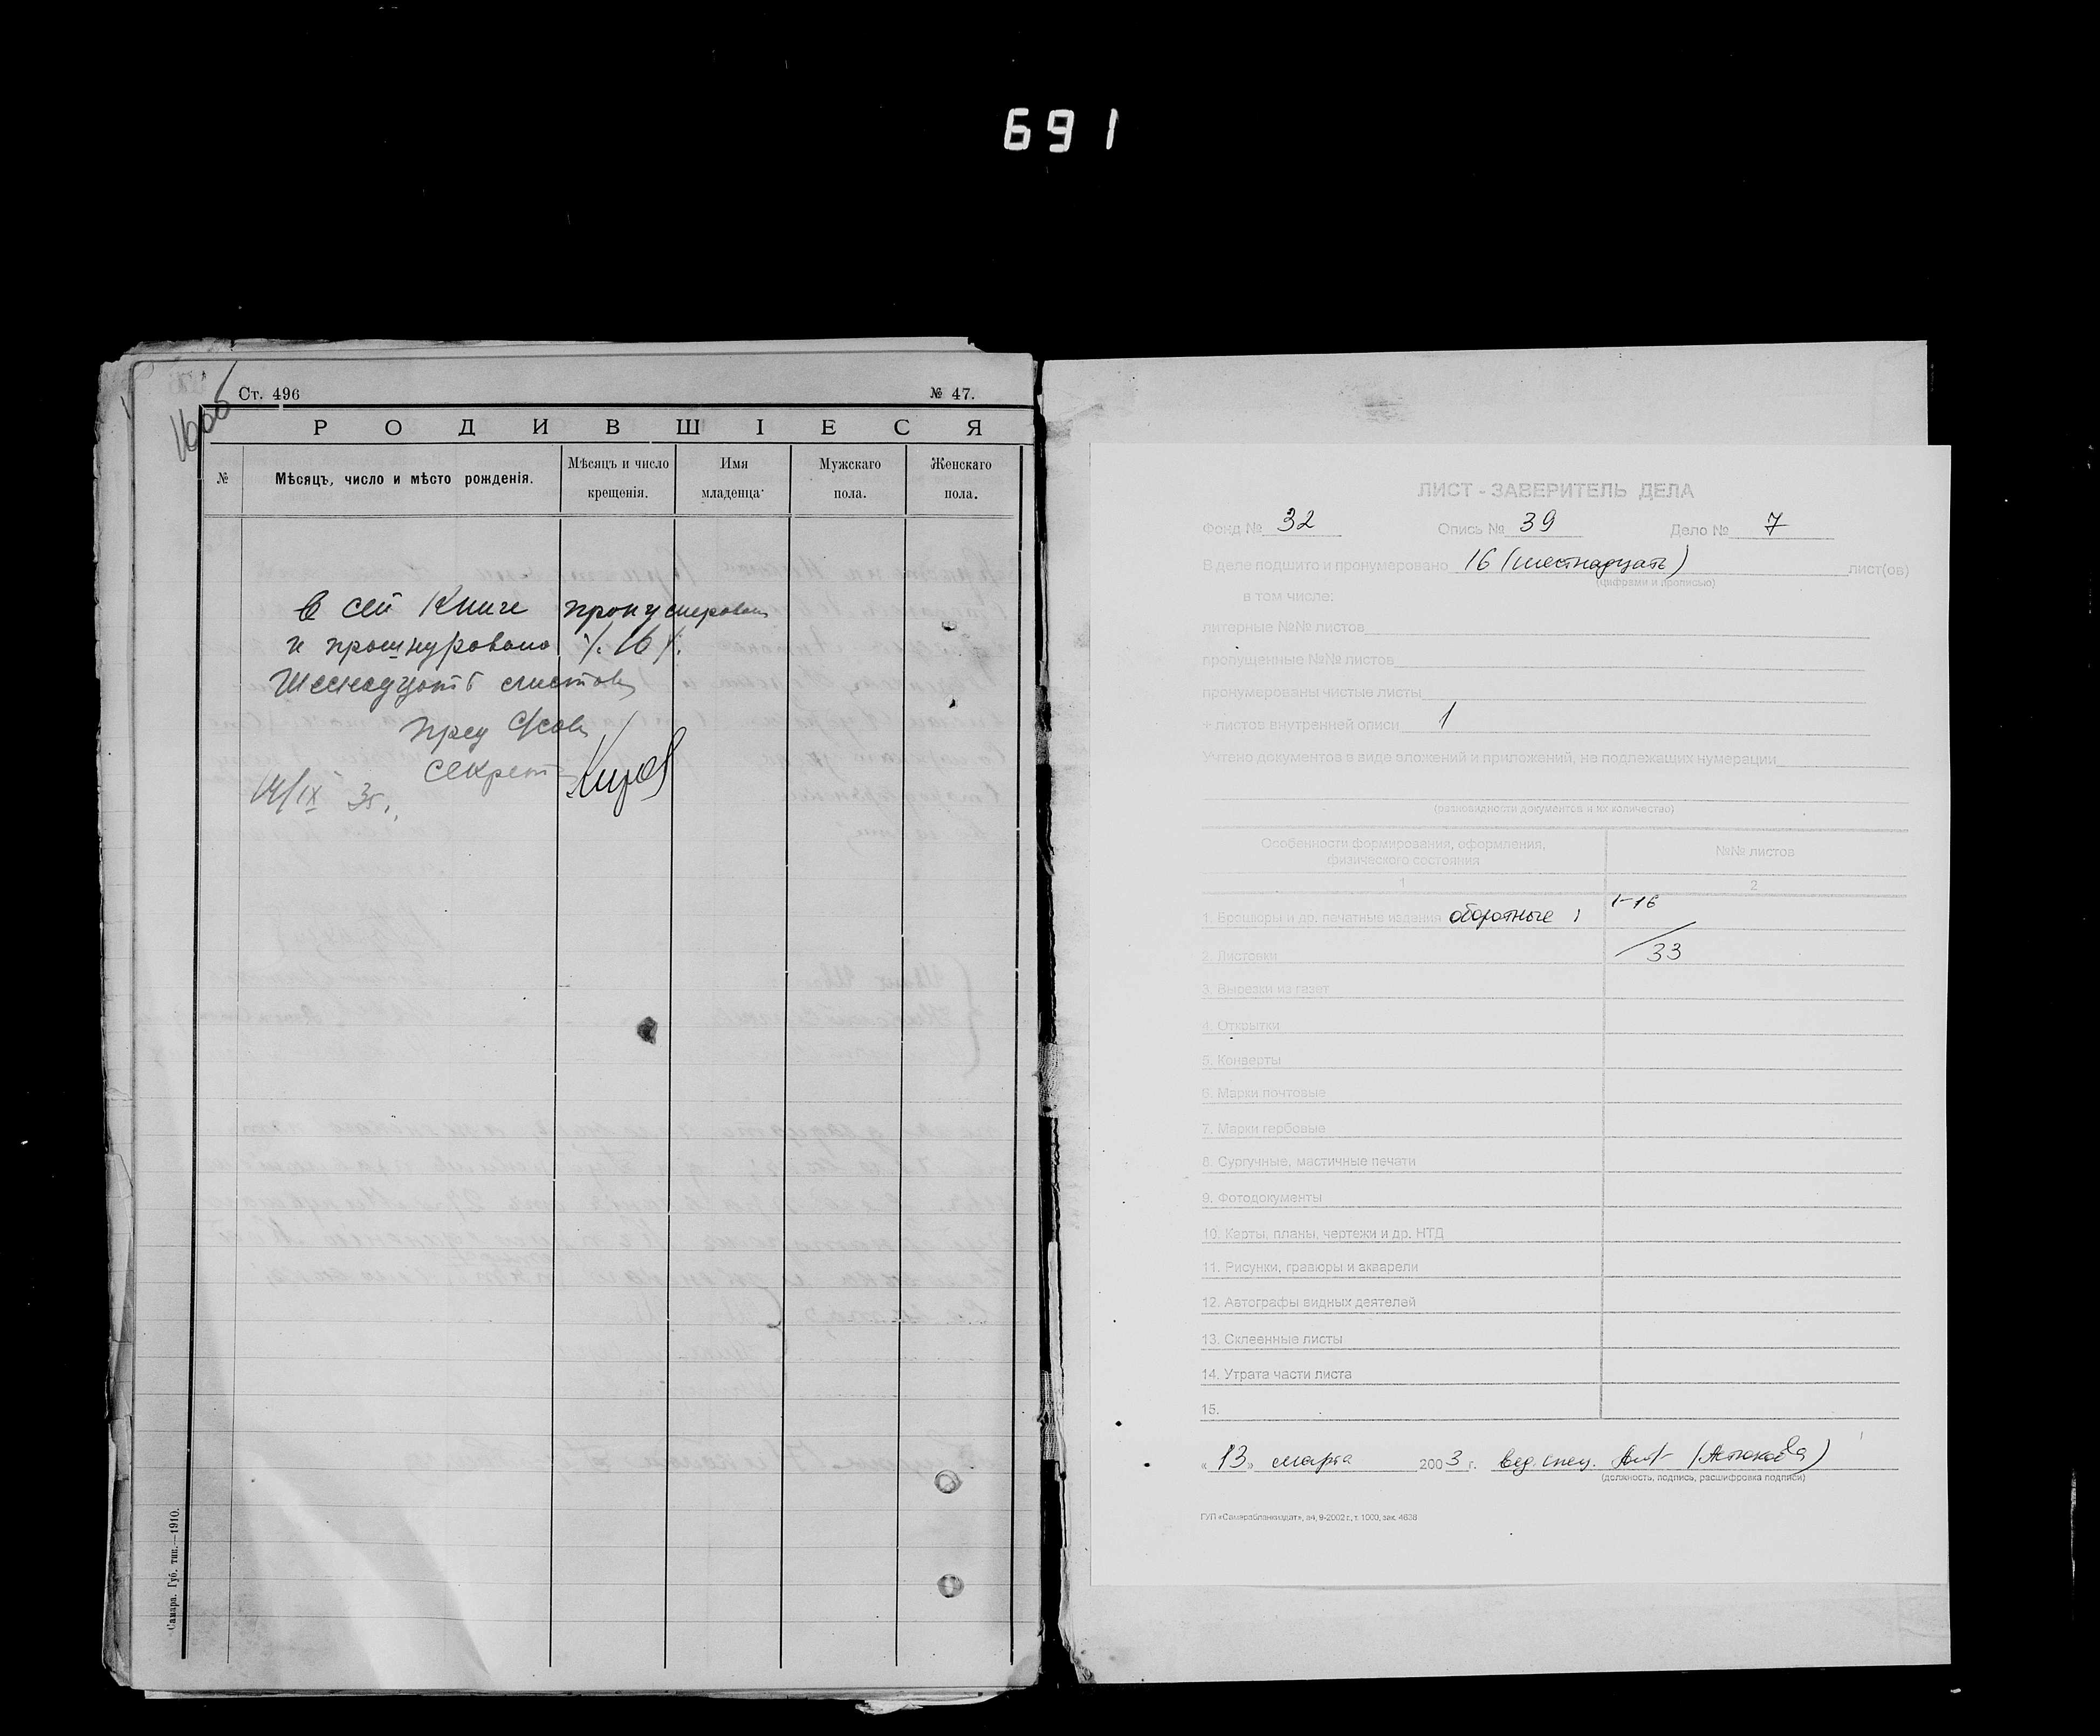 691
16об
Ст. 496 № 47.
РОДИВШІЕСЯ
№ Мѣсяцъ, число и мѣсто рожденія. Мѣсяцъ и число крещенія. Имя младенца Мужскаго пола. Женскаго пола.
В сей Книге пронумеровано
и прошнуровано /. 16 /.
Шеснадцать листов
Пред С/сов
Секрет
14/IX 35.
Самара. Губ. тип.—1910.
ЛИСТ - ЗАВЕРИТЕЛЬ ДЕЛА
Фонд № 32 Опись № 39 Дело № 7
В деле подшито и пронумеровано 16 (шестнадцать) лист(ов)
(цифрами и прописью)
в том числе:
литерные №№ листов
пропущенные №№ листов
пронумерованы чистые листы
+ листов внутренней описи 1
Учтено документов в виде вложений и приложений, не подлежащих нумерации
(разновидности документов и их количество)
Особенности формирования, оформления, физического состояния №№ листов
1 2
1. Брошюры и др. печатные издания оборотные 1-16
2. Листовки 33
3. Вырезки из газет
4. Открытки
5. Конверты
6. Марки почтовые
7. Марки гербовые
8. Сургучные, мастичные печати
9. Фотодокументы
10. Карты, планы, чертежи и др. НТД
11. Рисунки, гравюры и акварели
12. Автографы видных деятелей
13. Склеенные листы
14. Утрата части листа
15.
«13» марта 2003 г. вед. спец.
(должность, подпись, расшифровка подписи)
ГУП «Самарабланкиздат», а4, 9-2002 г., т. 1000, зак. 4638